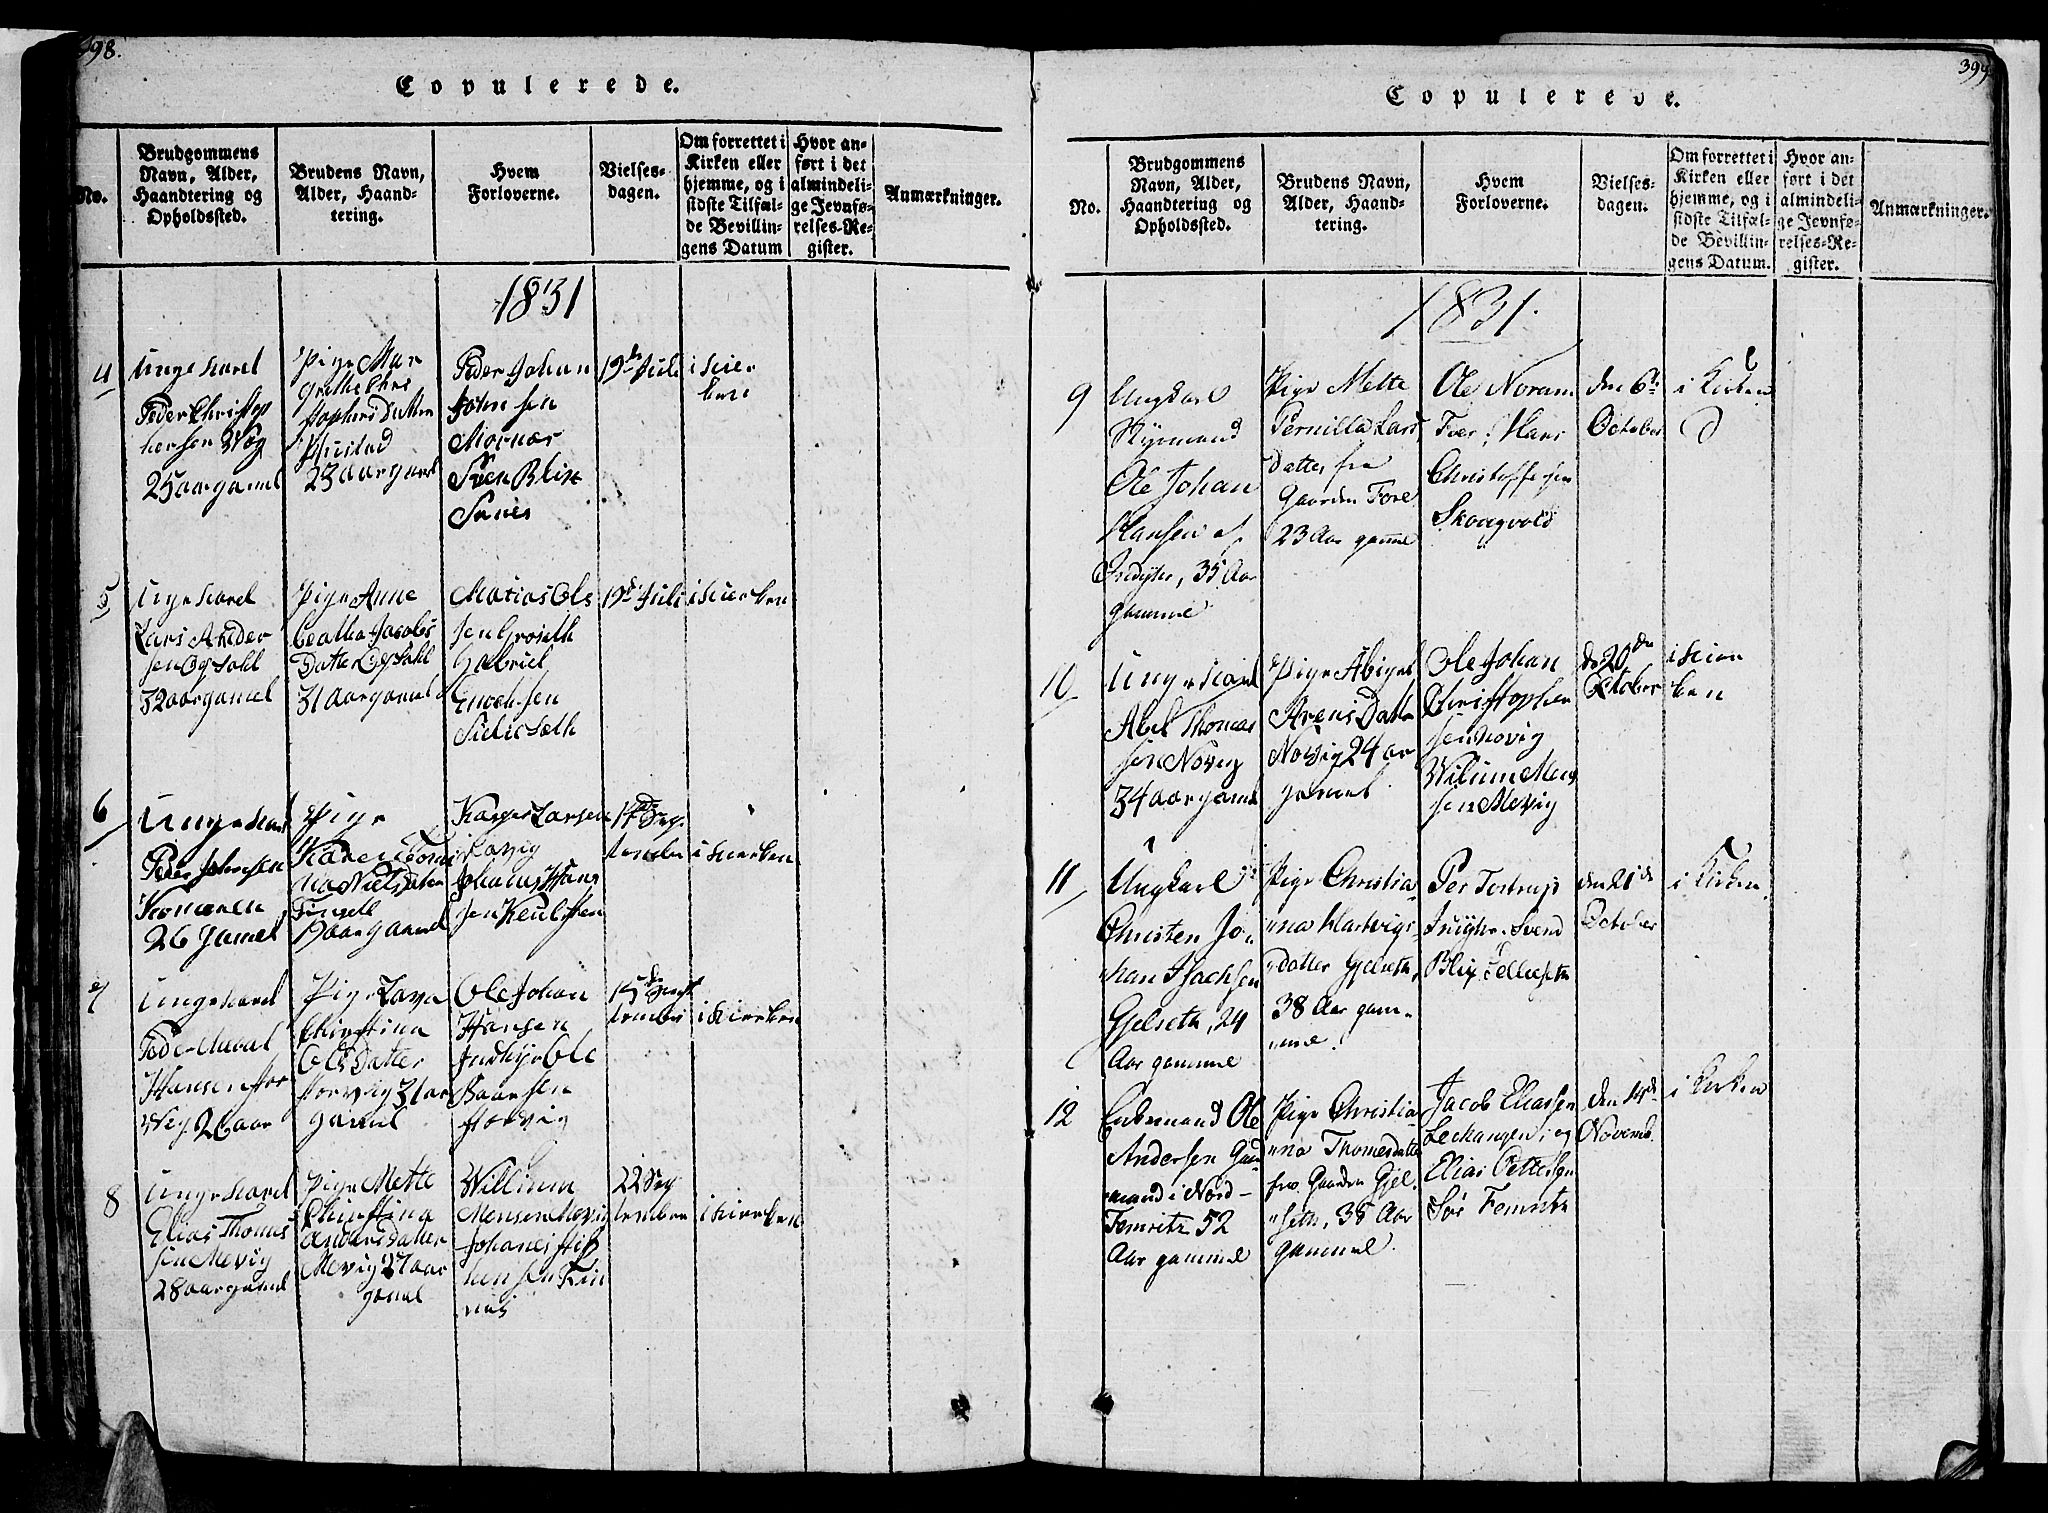 398.
Copulerede.
No.
Brudgommens
Navn, Alder,
Haandtering og
Opholdssted.
Brudens Navn,
Alder, Haand-
tering.
Hvem
Forloverne.
Vielses-
dagen.
Om forrettet i
Kirken eller
hjemme, og i
sidste Tilfæl-
de Bevillin-
gens Datum
Hvor an-
ført i det
almindeli-
ge Jevnfø-
relses-Re-
gister.
Anmærkninger.
1831
4
Unge karel
Peder Christop
hersen Vog
25 aar gamel
Pige Mar
grethe Chris
stophers Datter
23 aar gamel
Peder Johan
Johnsen
Mornær
Sven Blix
Sunes
19de Juli
i kier
ken
5
Unge karel
Lars Ander
sen Opsahl
32 aar gamel
Pige Anne
Beatha Jacobs
Datter Opsahl
31 aar gamel
Matias Ols
sen Groseth
Gabriel
Enochsen
19de Juli
i kierken
6
Unge karel
Peder Johnsen
26 gamel
Pige
Karen
Niels Datter
aar gamel
Kasper Larsen
Johanes Hans
sen
14de Sep
tember
i kierken
7
Unge karel
Peder
Hansen stor
Vig 26 aar
Pige Lava
Christina
Ols Datter
storvig 31 aar
gamel
Ole Johan
Hansen
Indhyr Ole
storvig
15de Sept
tember
i kierken
8
Unge karel
Elias Thomes
sen Mevig
28 aar gamel
Pige Mette
Christina
Anders Datter
Mevig 27 aar
gamel
Willium
Mensen Mevig
Johanes
22 Sep
tember
i kierken
399.
Copulerede.
No.
Brudgommens
Navn, Alder,
Haandtering og
Opholdssted.
Brudens Navn,
Alder, Haand-
tering.
Hvem
Forloverne.
Vielses-
dagen.
Om forrettet i
Kirken eller
hjemme, og i
sidste Tilfæl-
de Bevillin-
gens Datum.
Hvor an-
ført i det
almindeli-
ge Jevnfø-
relses-Re-
gister.
Anmærkninger.
1831.
9
Ungkarl
Styrmand
Ole Johan
Hansen af
Indyhr, 35 Aar
gammel
Pige Mette
Pernilla Lars
Datter fra
Gaarden Fore
23 Aar gamme
Ole Noram
Fore, Hans
Christoffersen
Skougvold
den 6te
October
i Kirken
10
Unge karel
Abel Thomas
sen Novig
34 aar gamel
Pige Abigel
Arens Datter
Novig 24 aar
gamel
Ole Johan
Christopher
sen Novig
Wilium Mens
sen Mevig
de 20de
October
i kier
ken
11
Ungkarl
Christen Jo-
han Isachsen
Gjelseth, 24
Aar gammel
Pige Christia
na Hartvigs-
datter Gjelseth,
38 Aar gam-
mel.
Per Tostrup
Inyhr. Svend
Blix Selleseth
den 21de
October
i Kirken
12
Enkemand Ole
Andersen Gaard
mand i Nord-
Femriis 52
Aar gammel
Pige Christia
na Thomesdatter
fra Gaarden Gjel-
seth, 38 Aar
gammel.
Jacob Eliassen
Leckangen, og
Elias Pettersen
Sør Femriis
den 14de
Novemb.
i Kirken